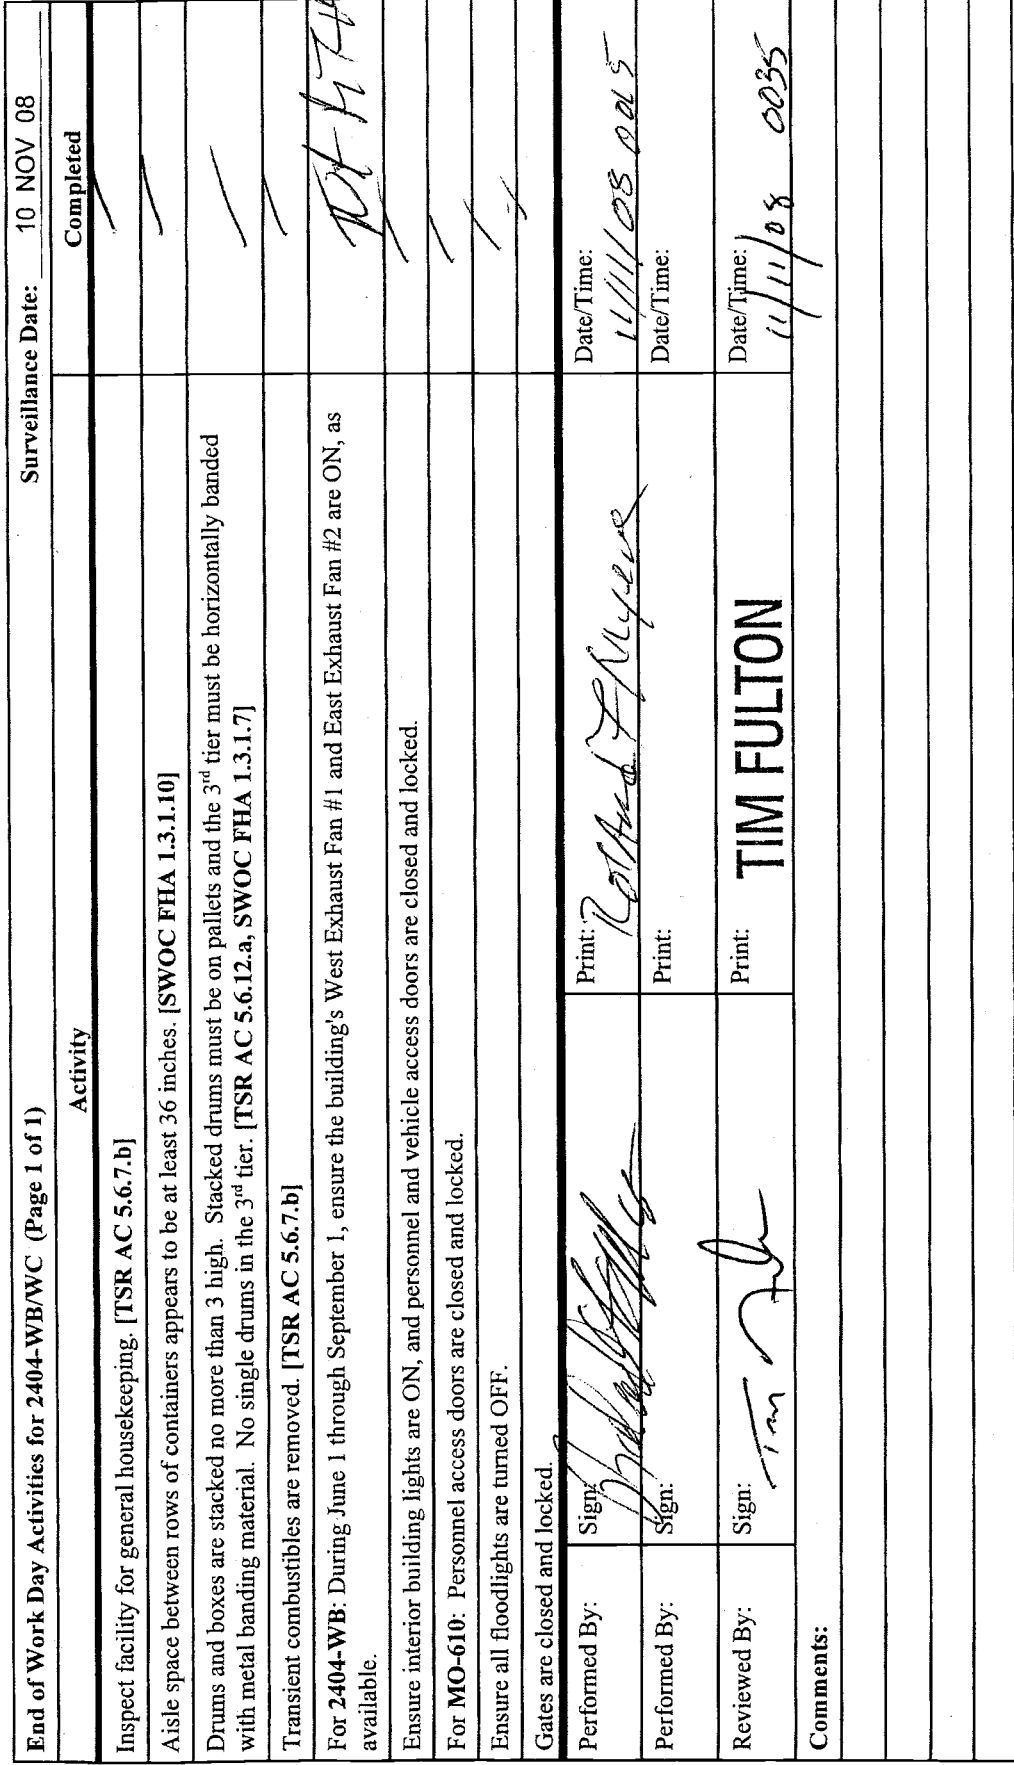 End of Work Day Activities for 2404-WB/WC (Page 1 of 1) Surveillance Date: 10 NOV 08
Activity Completed
Inspect facility for general housekeeping. [TSR AC 5.6.7.b]
Aisle space between rows of containers appears to be at least 36 inches. [SWOC FHA 1.3.1.10]
Drums and boxes are stacked no more than 3 high. Stacked drums must be on pallets and the 3rd tier must be horizontally banded
with metal banding material. No single drums in the 3rd tier. [TSR AC 5.6.12.a, SWOC FHA 1.3.1.7]
Transient combustibles are removed. [TSR AC 5.6.7.b]
For 2404-WB: During June 1 through September 1, ensure the building's West Exhaust Fan #1 and East Exhaust Fan #2 are ON, as
available.
Ensure interior building lights are ON, and personnel and vehicle access doors are closed and locked.
For MO-610: Personnel access doors are closed and locked.
Ensure all floodlights are turned OFF.
Gates are closed and locked.
Performed By: Sign: Print: Date/Time:
11/11/08 0015
Performed By: Sign: Print: Date/Time:
Reviewed By: Sign: Tim Print: TIM FULTON Date/Time:
11/11/08 0035
Comments: